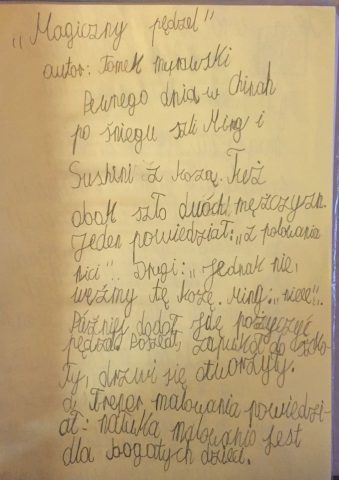 „Magiczny pędzel"
autor: Tomek Murawski
Pewnego dnia w Chinah
po śniegu szli Ming i
Sushini z kozą. Tuż
obok szło dwóch mężczyzn.
Jeden powiedział: „z polowania
nici". Drugi: „Jednak nie,
weźmy tę kozę. Ming: „nieee!".
Później dodał się pożyczyć
pędzel. Poszedł, zapukał do szko-
ły, drzwi się otworzyły.
a Treper malowania powiedzi-
ał: nauka malowania jest
dla bogatych dzieci.